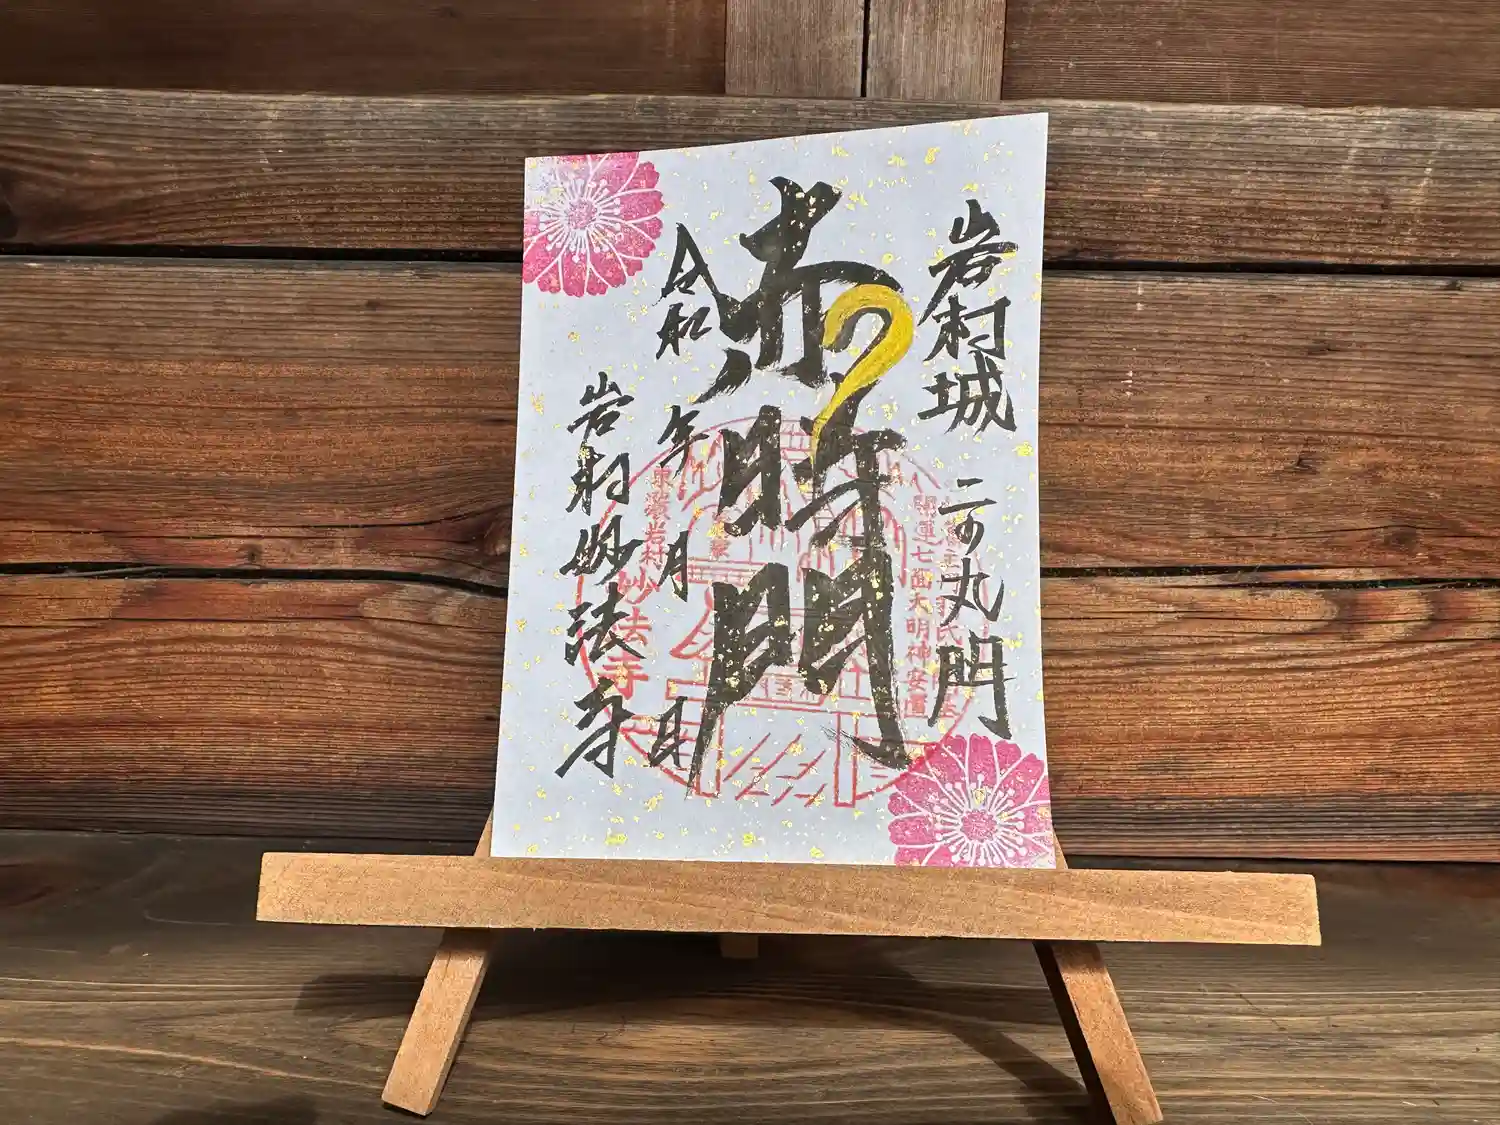 岩村城 二の丸門
赤時門
令和 年 月 日
岩村妙法寺
開運七面大明神安置
東濃岩村
妙法寺